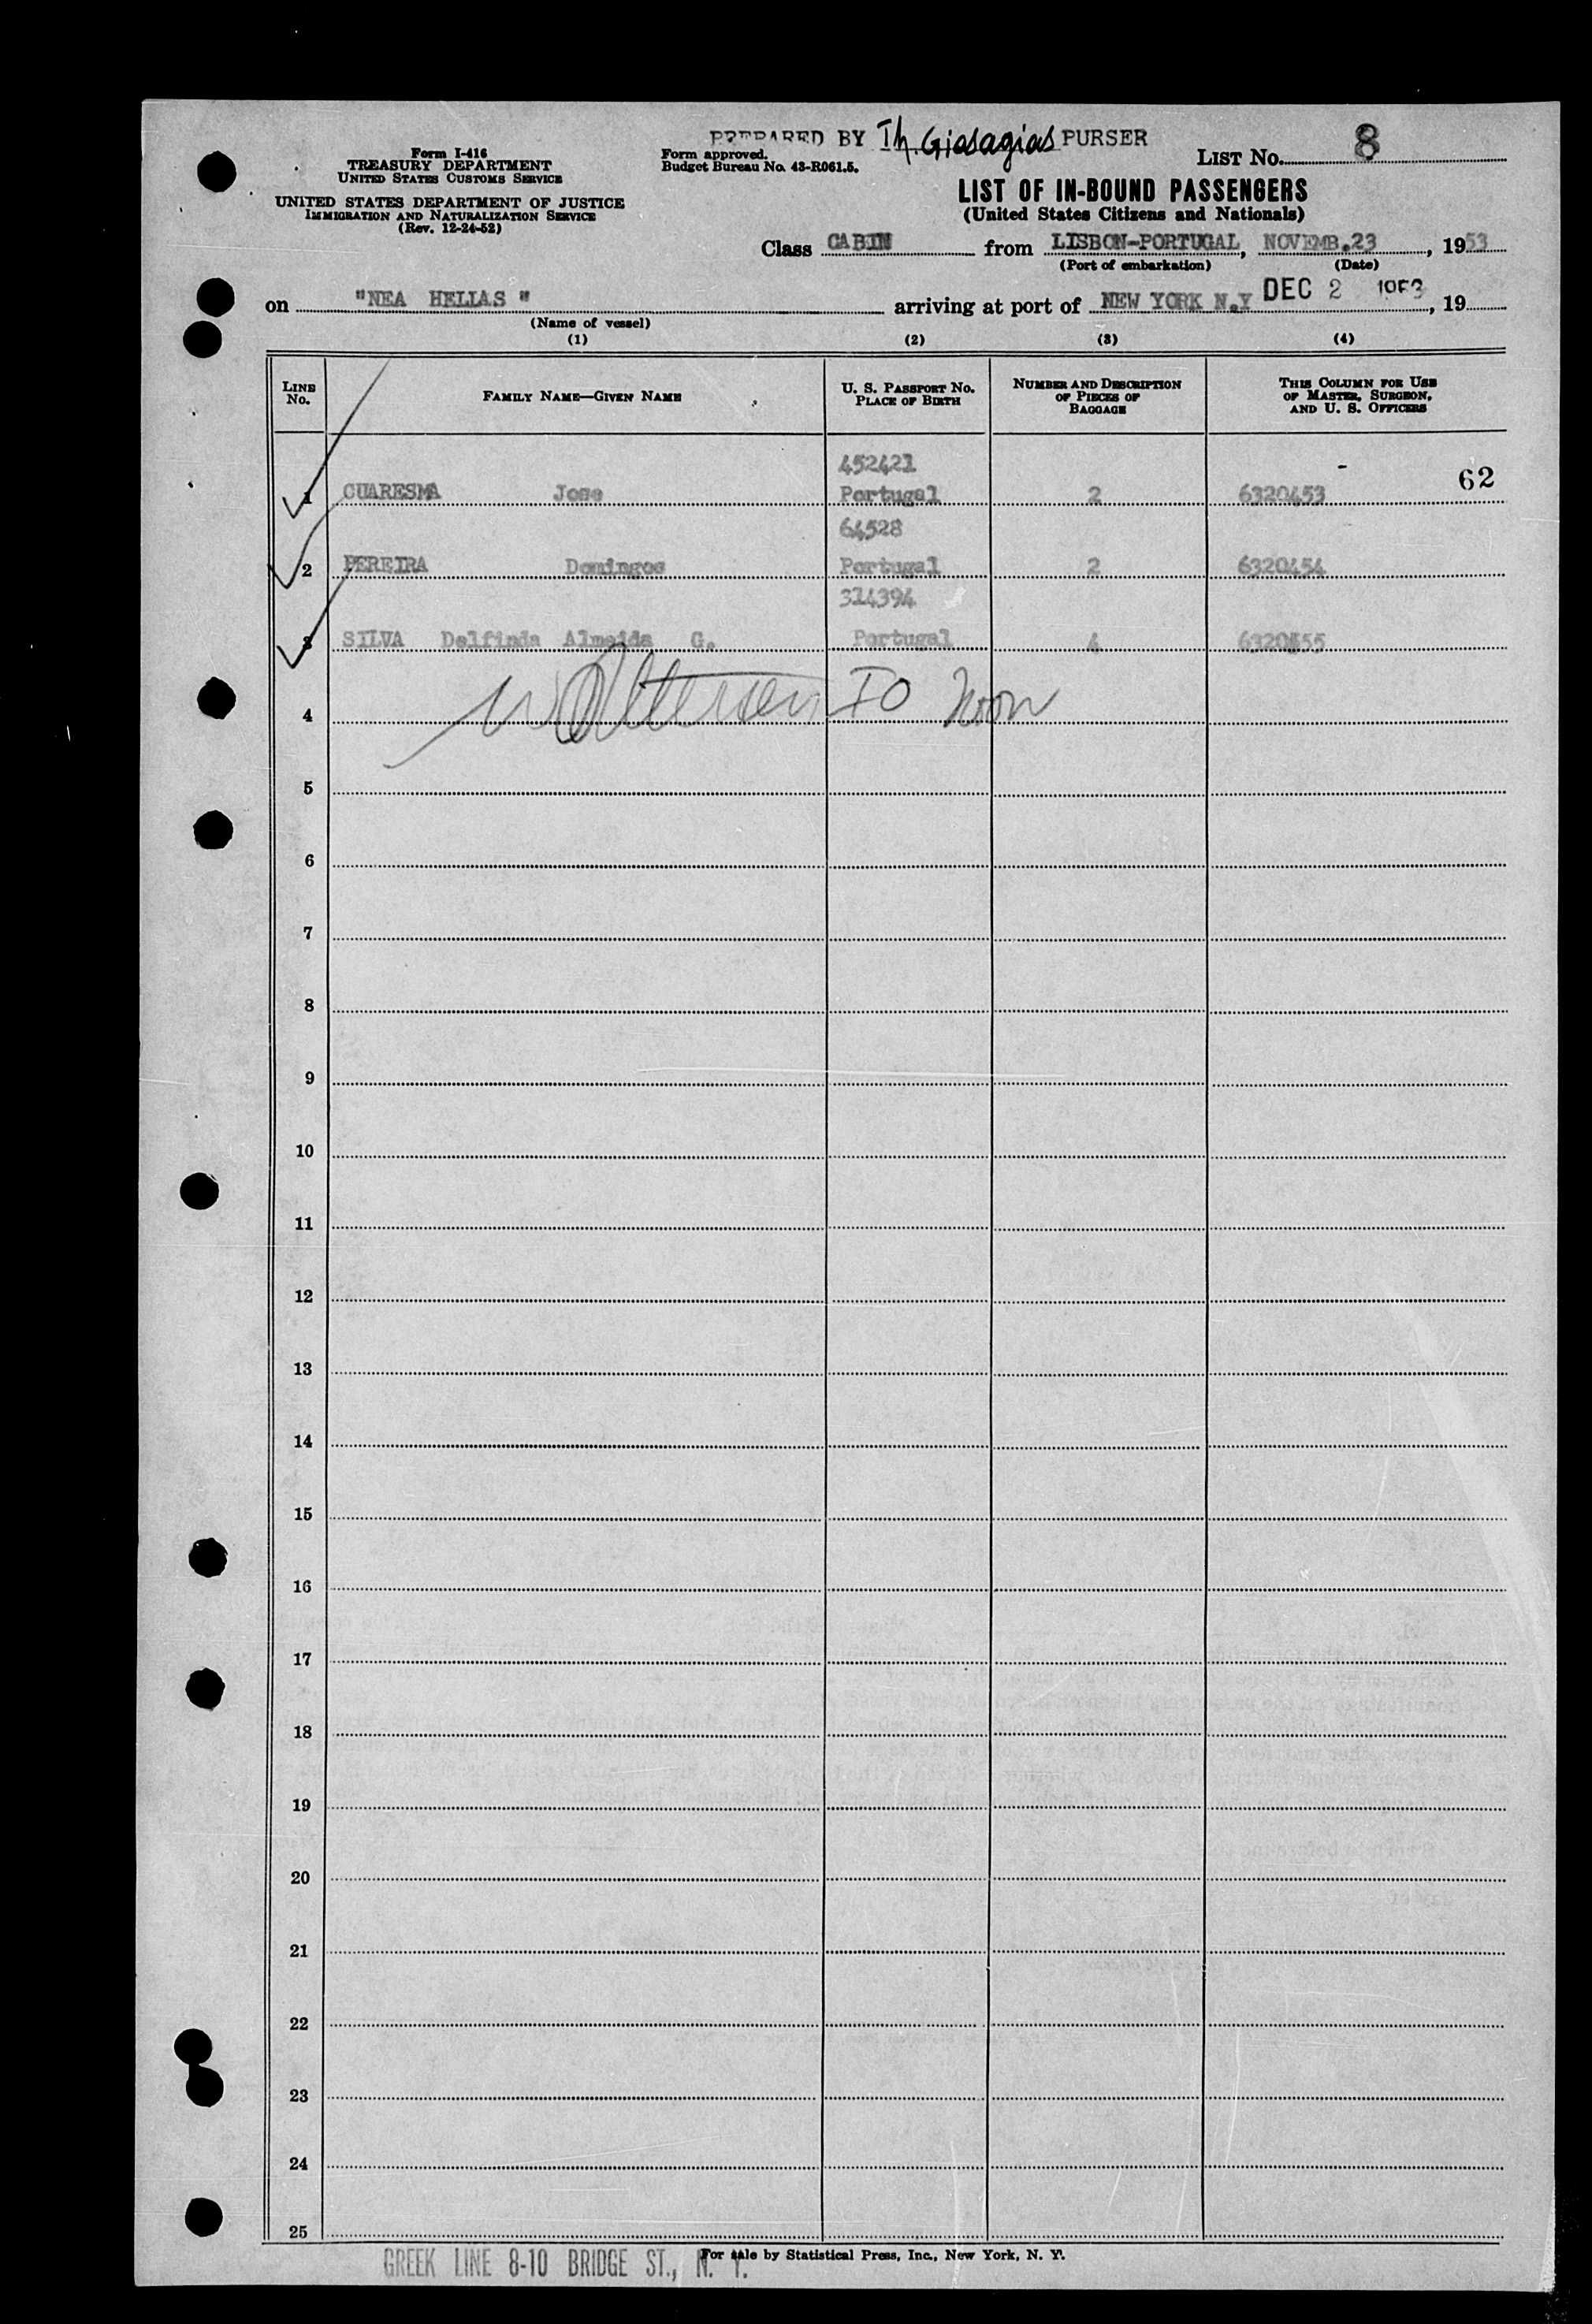 PREPARED BY Th. Giasagias PURSER
Form I-416
TREASURY DEPARTMENT
UNITED STATES CUSTOMS SERVICE
UNITED STATES DEPARTMENT OF JUSTICE
IMMIGRATION AND NATURALIZATION SERVICE
(Rev. 12-24-52)
Form approved.
Budget Bureau No. 43-R061.5.
LIST No. 8
LIST OF IN-BOUND PASSENGERS
(United States Citizens and Nationals)
Class CABIN from LISBON-PORTUGAL, NOVEMB.23, 1953
(Port of embarkation) (Date)
on "NEA HELLAS" arriving at port of NEW YORK N.Y DEC 2 1953, 19
(Name of vessel)
(1) (2) (3) (4)
LINE No. FAMILY NAME—GIVEN NAME U. S. PASSPORT No. PLACE OF BIRTH NUMBER AND DESCRIPTION OF PIECES OF BAGGAGE THIS COLUMN FOR USE OF MASTER, SURGEON, AND U. S. OFFICERS
452421
1 CUARESMA Jose Portugal 2 6320453 62
64528
2 PEREIRA Domingos Portugal 2 6320454
314394
3 SILVA Delfinda Almeida G. Portugal 4 6320455
4 IO
5
6
7
8
9
10
11
12
13
14
15
16
17
18
19
20
21
22
23
24
25
For sale by Statistical Press, Inc., New York, N. Y.
GREEK LINE 8-10 BRIDGE ST., N. Y.